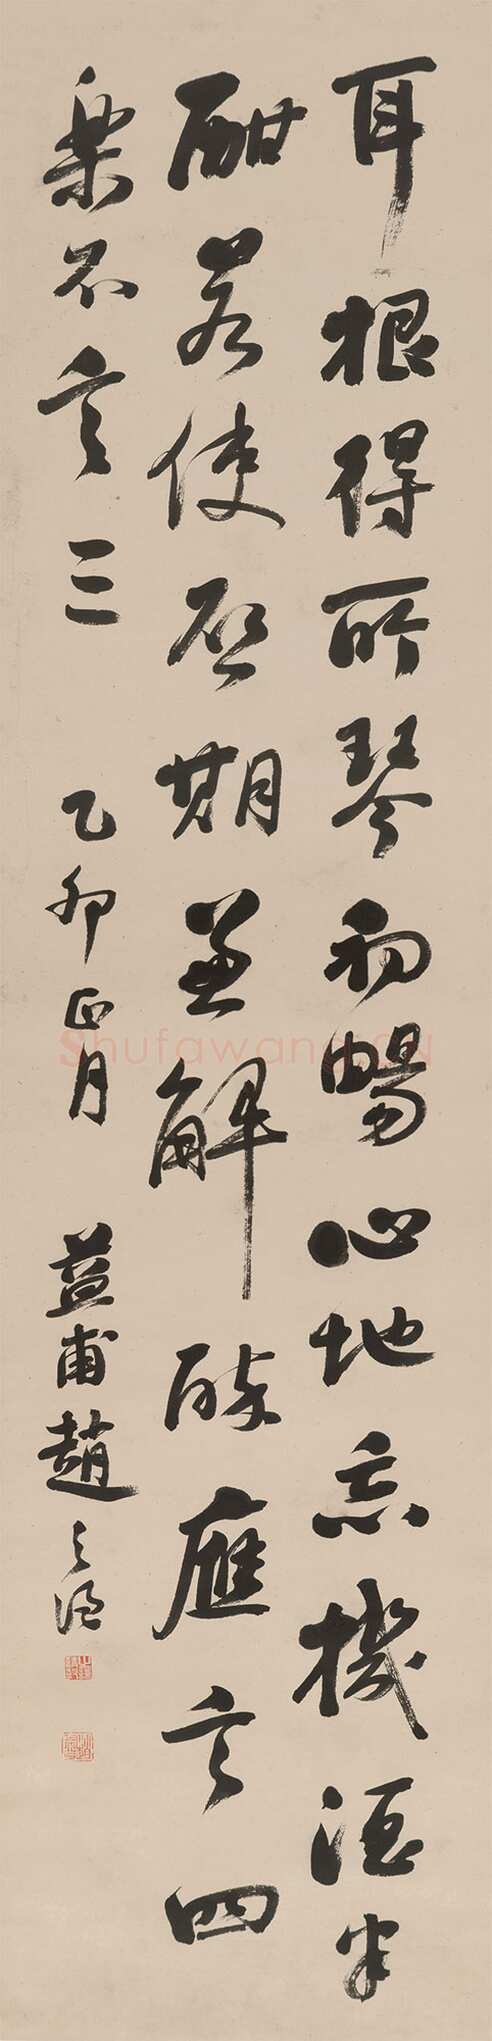 耳根得所琴初暢心地忘機酒半
酣若使啓期兼解醉應言四
樂不言三
乙卯正月
益甫趙之謙
Shufawang.CN